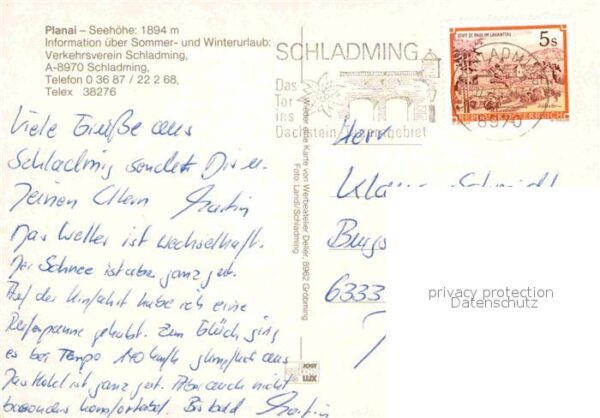 Planai – Seehöhe: 1894 m
Information über Sommer- und Winterurlaub:
Verkehrsverein Schladming,
A-8970 Schladming,
Telefon 0 36 87 / 22 2 68,
Telex 38276
SCHLADMING
Das
Tor
ins
Dachstein-Tauerngebiet
STIFT ST. PAUL IM LAVANTTAL
5s
REPUBLIK ÖSTERREICH
SCHLADMING
8970
Viele Grüße aus
Schladmig sendet Dir u.
Deinen Eltern Martin
Das Wetter ist wechselhaft.
Der Schnee ist aber ganz gut.
Auf der Hinfahrt habe ich eine
Reifenpanne gehabt. Zum Glück ging
es bei Tempo 140 km/h glimpflich aus
Das Hotel ist ganz gut. Aber auch nicht
besonders komfortabel. Bis bald Martin
Wieder eine Karte von Werbeatelier Deller, 8962 Gröbming
Foto: Landl/Schladming
POST
LUX
Herr
Klaus Schmidt
6333
privacy protection
Datenschutz